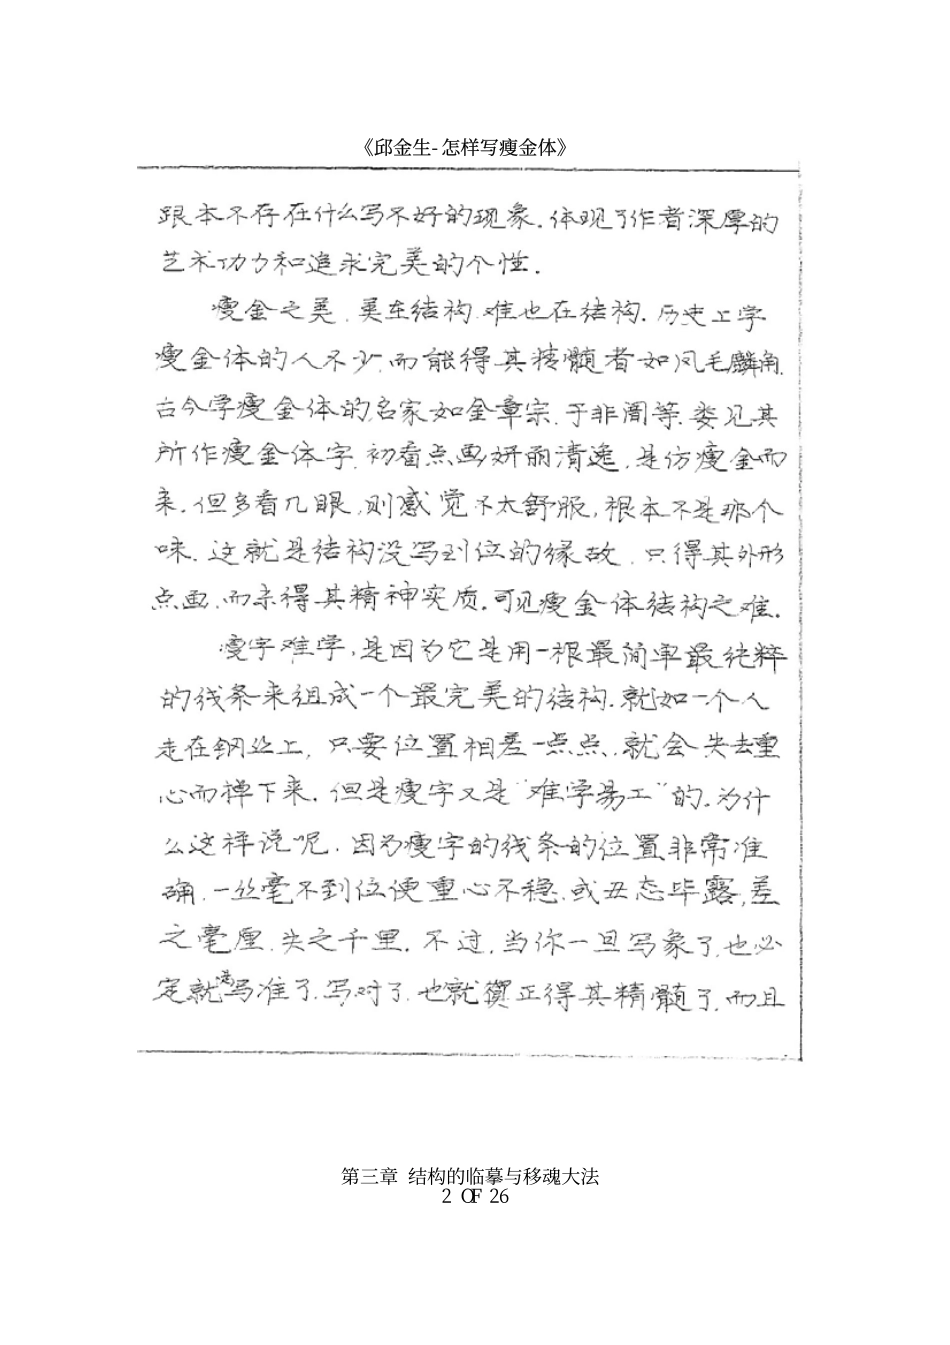 《邱金生-怎样写瘦金体》
跟本不存在什么写不好的现象.体现了作者深厚的
艺术功力和追求完美的个性.
瘦金之美.美在结构.难也在结构.历史上学
瘦金体的人不少.而能得其精髓者如凤毛麟角.
古今学瘦金体的名家如金章宗.于非闇等.娄见其
所作瘦金体字.初看点画妍丽清逸.是仿瘦金而
来.但多看几眼,则感觉不太舒服,根本不是那个
味.这就是结构没写到位的缘故.只得其外形
点画.而未得其精神实质.可见瘦金体结构之难.
瘦字难学,是因为它是用一根最简单最纯粹
的线条来组成一个最完美的结构.就如一个人
走在钢丝上,只要位置相差一点点.就会失去重
心而掉下来.但是瘦字又是"难学易工"的.为什
么这样说呢.因为瘦字的线条的位置非常准
确.一丝毫不到位便重心不稳.或丑态毕露,差
之毫厘.失之千里.不过,当你一旦写象了.也必
定就写准了.写对了.也就真正得其精髓了.而且
第三章 结构的临摹与移魂大法
2 OF 26